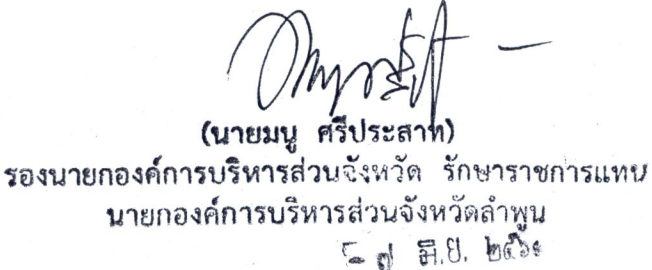 (นายมนู ศรีประสาท)
รองนายกองค์การบริหารส่วนจังหวัด รักษาราชการแทน
นายกองค์การบริหารส่วนจังหวัดลำพูน
- ๗ มิ.ย. ๒๕๖๑